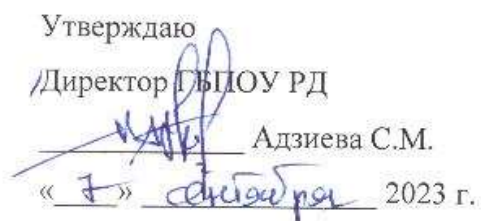 Утверждаю
Директор ГБПОУ РД
Адзиева С.М.
« 7 » сентября 2023 г.